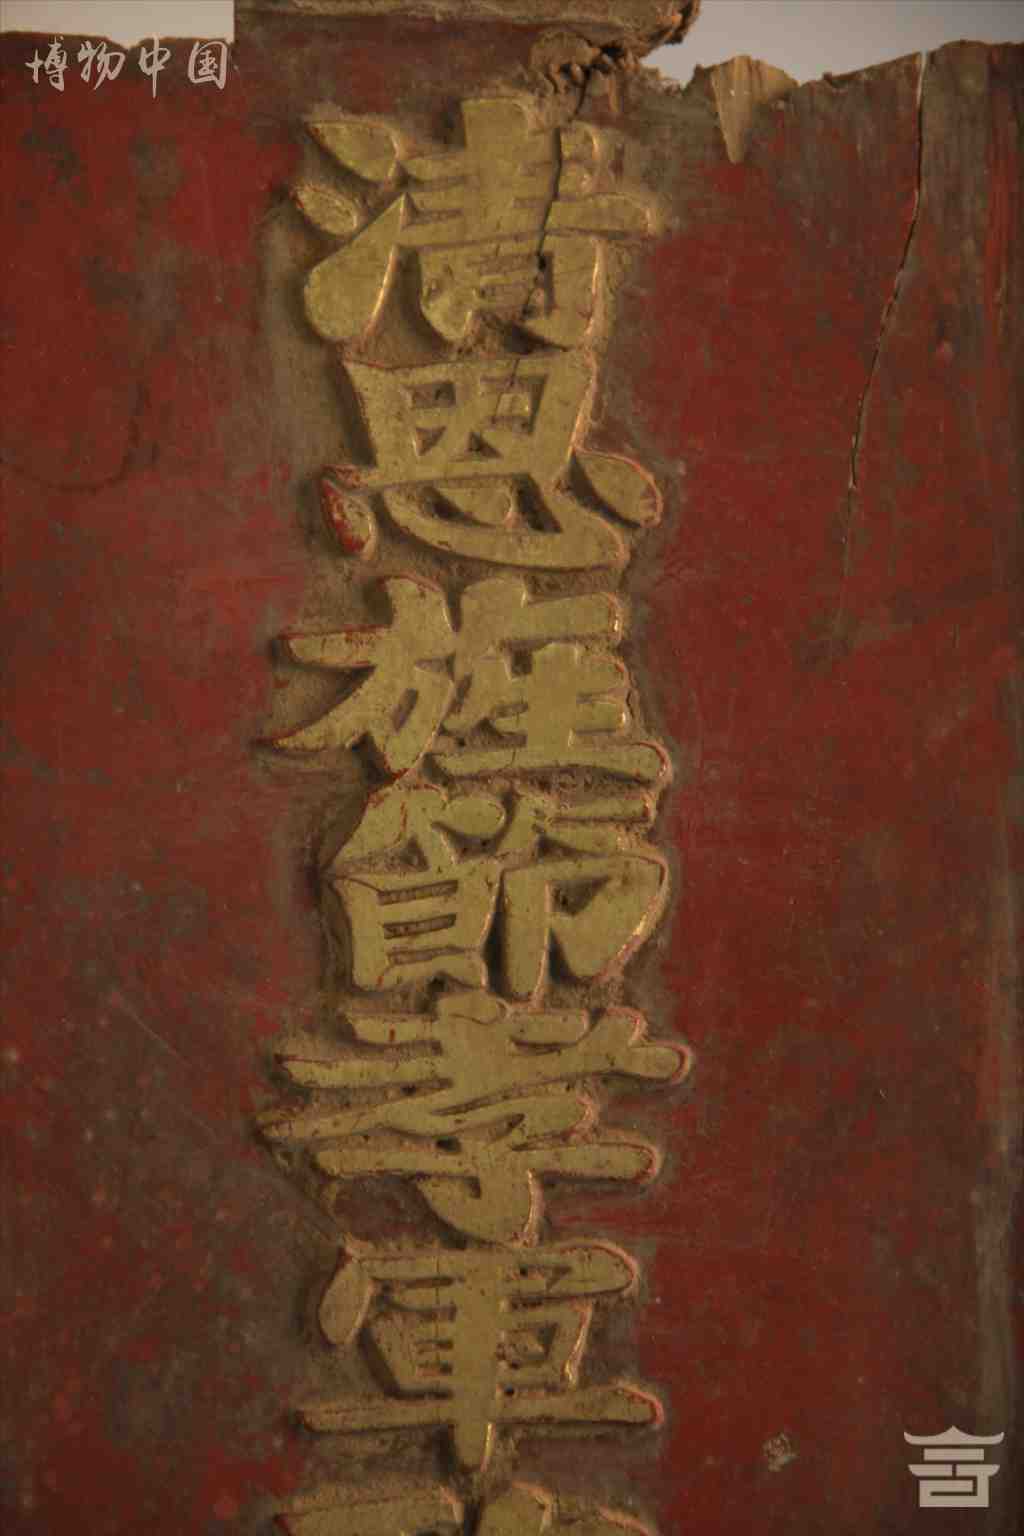 博物中国
清恩旌節孝軍